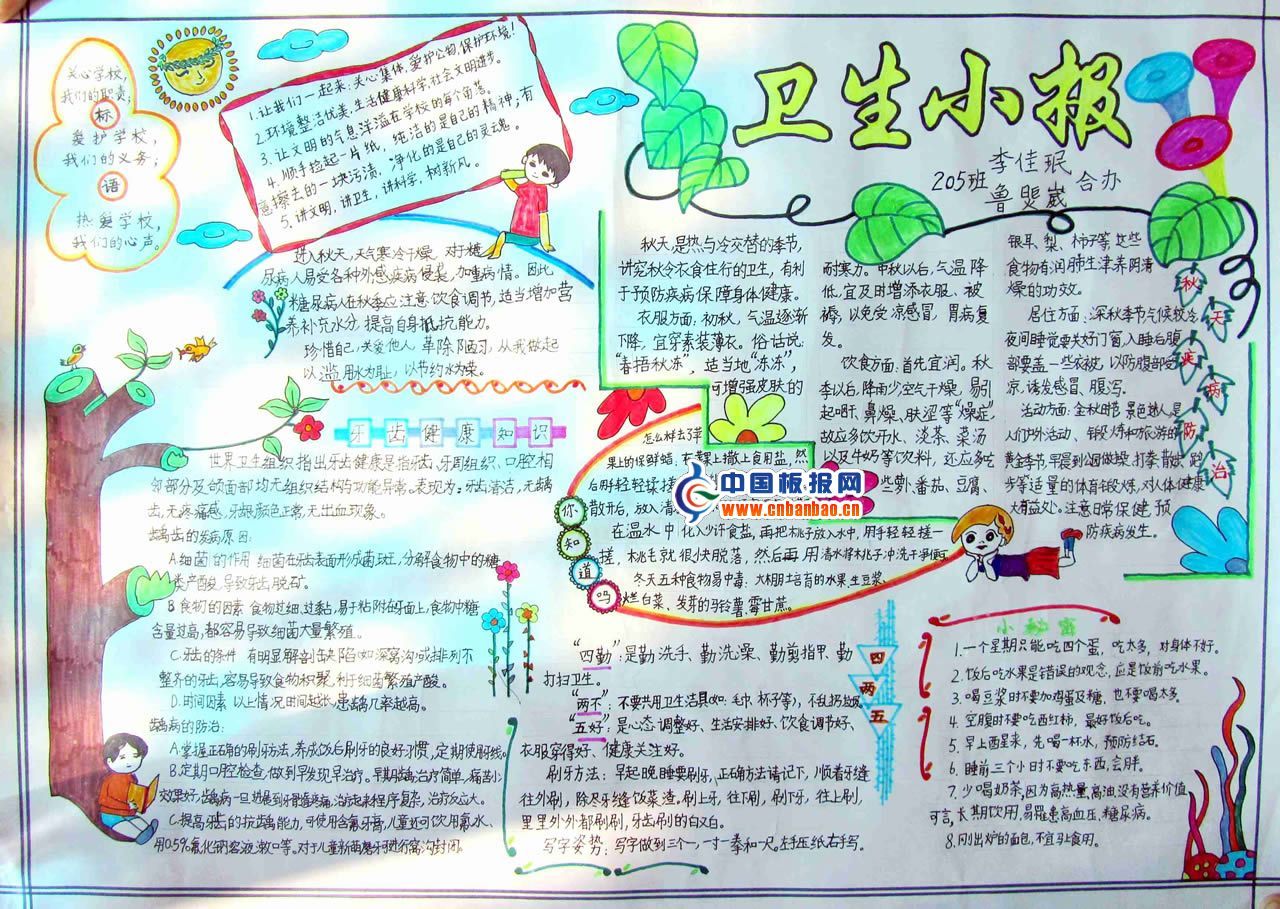 关心学校,
我们的职责;
标
爱护学校,
我们的义务;
语
热爱学校,
我们的心声。
1.让我们一起来:关心集体,爱护公物,保护环境!
2.环境整洁优美,生活健康科学,社会文明进步。
3.让文明的气息洋溢在学校的每个角落。
4.顺手捡起一片纸,纯洁的是自己的精神;有
意擦去的一块污渍,净化的是自己的灵魂。
5.讲文明,讲卫生,讲科学,树新风。
卫生小报
205班
李佳珉
鲁
合办
进入秋天,天气寒冷干燥,对于糖
尿病人易受各种外感疾病侵袭,加重病情。因此
糖尿病人在秋季应注意饮食调节,适当增加营
养补充水分,提高自身抵抗能力。
珍惜自己,关爱他人,革除陋习,从我做起
以滥用水为耻,以节约水为荣。
牙齿健康知识
世界卫生组织指出牙齿健康是指牙齿、牙周组织、口腔相
邻部分及颌面部均无组织结构与功能异常。表现为:牙齿清洁,无龋
齿,无疼痛感,牙龈颜色正常,无出血现象。
龋齿的发病原因:
A.细菌的作用 细菌在牙齿表面形成菌斑,分解食物中的糖
类产酸,导致牙齿脱矿。
B.食物的因素 食物过细、过黏,易于粘附在牙面上,食物中糖
含量过高,都容易导致细菌大量繁殖。
C.牙齿的条件 有明显解剖缺陷(如深窝沟)或排列不
整齐的牙齿,容易导致食物积聚,利于细菌繁殖产酸。
D.时间因素 以上情况时间越长,患龋几率越高。
龋病的防治:
A.掌握正确的刷牙方法,养成饭后刷牙的良好习惯,定期使用牙线。
B.定期口腔检查,做到早发现早治疗。早期龋治疗简单,痛苦小
效果好;龋病一旦进展到牙髓疼痛,治疗起来程序复杂,治疗反应大。
C.提高牙齿的抗龋能力,可使用含氟牙膏,儿童还可饮用氟水、
用0.5%氟化钠溶液漱口等。对于儿童新萌磨牙进行窝沟封闭。
秋天,是热与冷交替的季节,
讲究秋令衣食住行的卫生,有利
于预防疾病保障身体健康。
衣服方面:初秋,气温逐渐
下降,宜穿素装薄衣。俗话说:
“春捂秋冻”,适当地“冻冻”,
可增强皮肤的
耐寒力。中秋以后,气温降
低,宜及时增添衣服、被
褥,以免受凉感冒,胃病复
发。
饮食方面:首先宜润。秋
季以后,降雨少,空气干燥,易引
起咽干、鼻燥、肤涩等“燥症”
故应多饮开水、淡茶、菜汤
以及牛奶等饮料,还应多吃
些萝卜、番茄、豆腐、
银耳、梨、柿子等,这些
食物有润肺生津养阴清
燥的功效。
居住方面:深秋季节气候较冷
夜间睡觉要关好门窗,入睡后腹
部要盖一些衣被,以防腹部受
凉,诱发感冒、腹泻。
活动方面:金秋时节,景色迷人,是
人们户外活动、锻炼和旅游的
黄金季节,早晨到公园做操、打拳、散步、跑
步等适量的体育锻炼,对人体健康
大有益处。注意日常保健,预
防疾病发生。
秋天疾病防治
你知道吗
怎么样去了苹
果上的保鲜蜡:在苹果上撒上食用盐,然
后用手轻轻揉搓
散开后,放入清
在温水中化入少许食盐,再把桃子放入水中,用手轻轻搓一
搓,桃毛就很快脱落,然后再用清水将桃子冲洗干净便可
冬天五种食物易中毒:大棚里培育的水果、生豆浆、
烂白菜、发芽的马铃薯、霉甘蔗。
中国板报网
www.cnbanbao.cn
四两五
“四勤”:是勤洗手、勤洗澡、勤剪指甲、勤
打扫卫生。
“两不”:不要共用卫生洁具(如:毛巾、杯子等),不乱扔垃圾。
“五好”:是心态调整好、生活安排好、饮食调节好、
衣服穿得好、健康关注好。
刷牙方法:早起晚睡要刷牙,正确方法请记下,顺着牙缝
往外刷,除尽牙缝饭菜渣,刷上牙,往下刷,刷下牙,往上刷,
里里外外都刷刷,牙齿刷的白又白。
写字姿势:写字做到三个一,一寸一拳和一尺。左手压纸右手写。
小秘密
1.一个星期只能吃四个蛋,吃太多,对身体不好。
2.饭后吃水果是错误的观念,应是饭前吃水果。
3.喝豆浆时不要加鸡蛋及糖,也不要喝太多。
4.空腹时不要吃西红柿,最好饭后吃。
5.早上醒来,先喝一杯水,预防结石。
6.睡前三个小时不要吃东西,会胖。
7.少喝奶茶,因为高热量,高油,没有营养价值
可言,长期饮用,易罹患高血压,糖尿病。
8.刚出炉的面包,不宜马上食用。